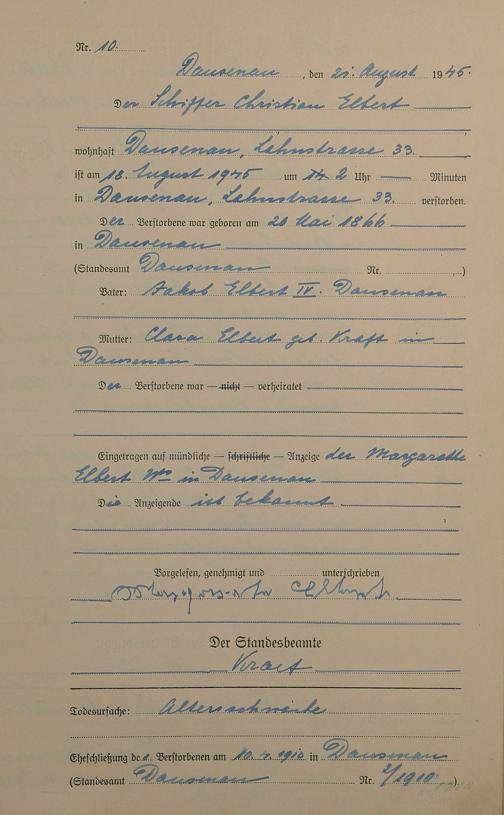 Nr. 10.
Dausenau, den 21. August 1945.
Der Schiffer Christian Elbert
wohnhaft Dausenau, Lahnstrasse 33.
ist am 18. August 1945 um 2 Uhr — Minuten
in Dausenau, Lahnstrasse 33. verstorben.
Der Verstorbene war geboren am 20 Mai 1866
in Dausenau
(Standesamt Dausenau Nr. )
Vater: Jakob Elbert IV. Dausenau
Mutter: Clara Elbert geb. Kraft in
Dausenau
Der Verstorbene war — nicht — verheiratet
Eingetragen auf mündliche — schriftliche — Anzeige der Margarethe
Elbert Wwe in Dausenau
Die Anzeigende ist bekannt
Vorgelesen, genehmigt und unterschrieben
Margarete Elbert
Der Standesbeamte
Kraft
Todesursache: Altersschwäche
Eheschließung des Verstorbenen am 10.4.1910 in Dausenau
(Standesamt Dausenau Nr. 2/1910)